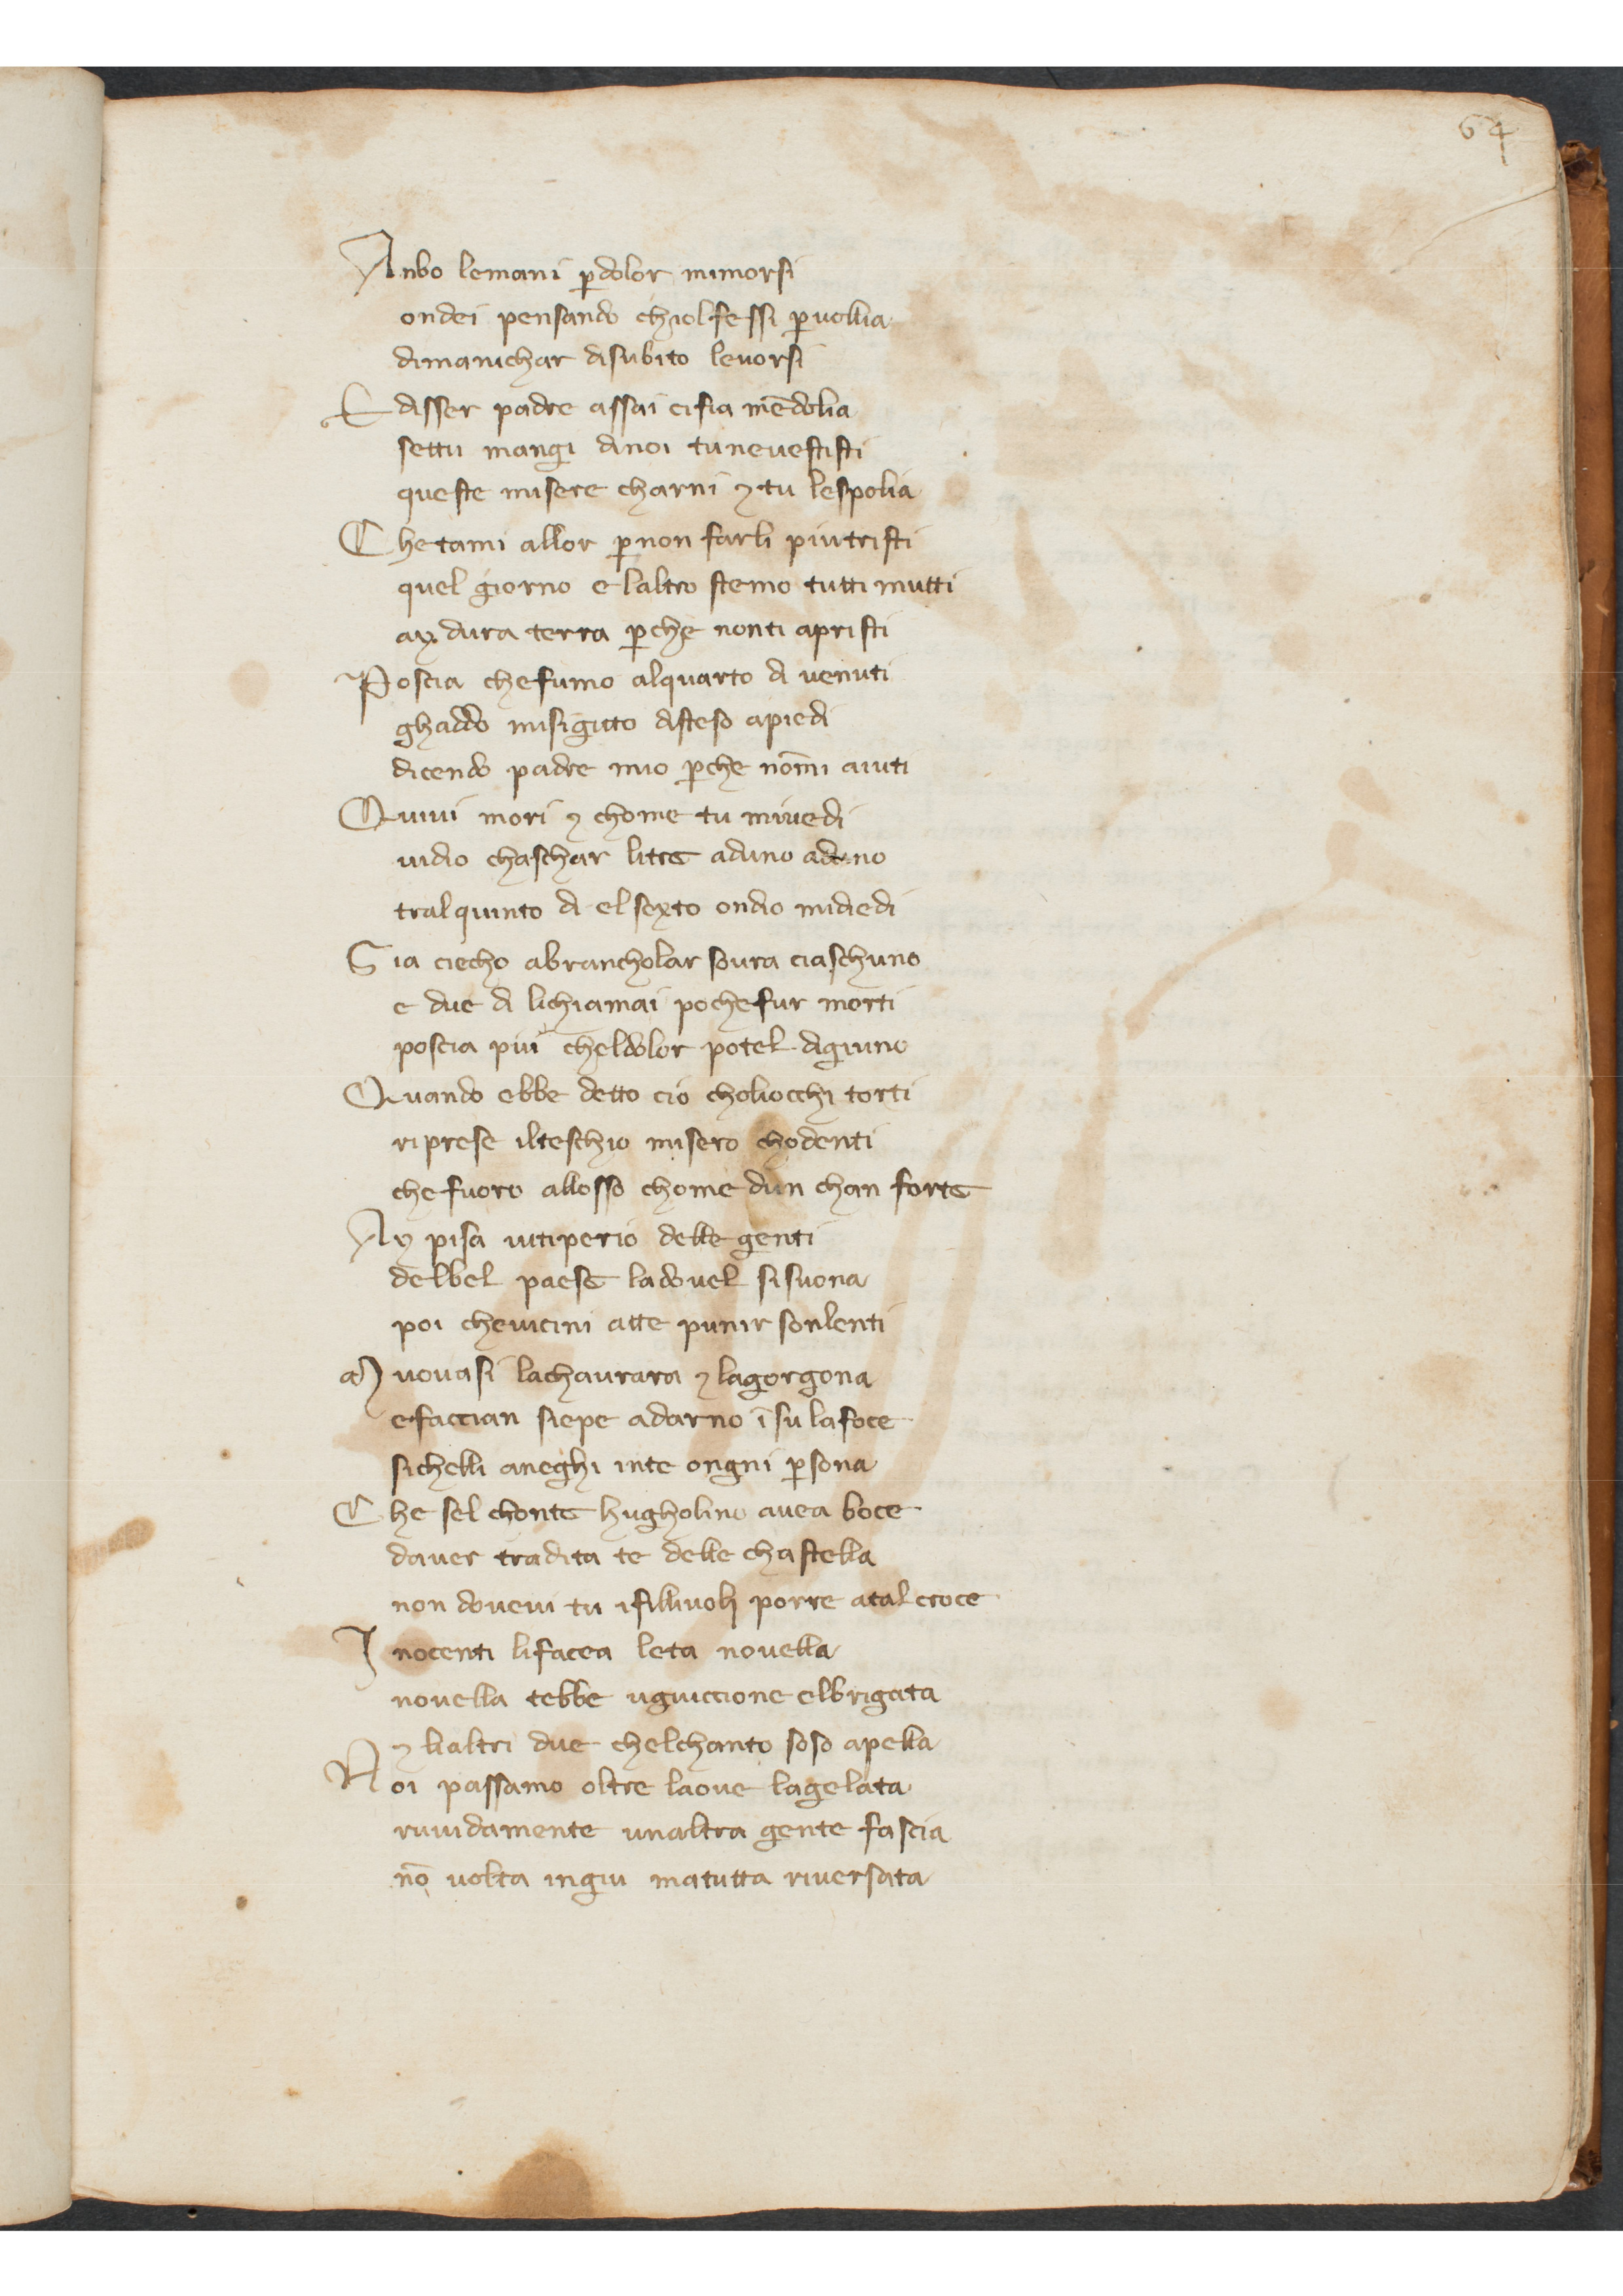 64
Anbo lemani ꝑdolor mimorsi
ondei pensando chiolfessi ꝑvollia
dimanichar disubito levorsi
E disser padre assai cifia mē dolia
settu mangi dinoi tunevestisti
queste misere charni ⁊ tu lespolia
Chetami allor ꝑnon farli piutristi
quel giorno e laltro stemo tutti mutti
ay dura terra ꝑche nonti apristi
Poscia chefumo alquarto di venuti
ghaddo misigitto disteso apiedi
dicendo padre mio ꝑche nōmi aiuti
Quivi mori ⁊ chome tu mivedi
vidio chaschar litre aduno aduno
tralquinto di elsexto ondio midiedi
Gia ciecho abrancholar sovra ciaschuno
e due di lichiamai pochefur morti
poscia piu cheldolor potel digiuno
Quando ebbe detto cio choliocchi torti
riprese ilteschio misero chodenti
chefuoro allosso chome dun chan forte
Ay pisa vitiperio delle genti
delbel paese ladovel sisuona
poi chevicini atte punir sonlenti
Muovasi lachavrara ⁊ lagorgona
efaccian siepe adarno ī su lafoce
sichelli aneghi inte ongni ꝑsona
Che sel chonte hugholino avea boce
daver tradita te delle chastella
non dovevi tu ifillivoli porre atal croce
Inocenti lifacea leta novella
novella tebbe uguiccione elbrigata
⁊ lialtri due chelchanto soso apella
Noi passamo oltre laove lagelata
ruvidamente unaltra gente fascia
nō volta ingiu matutta riversata